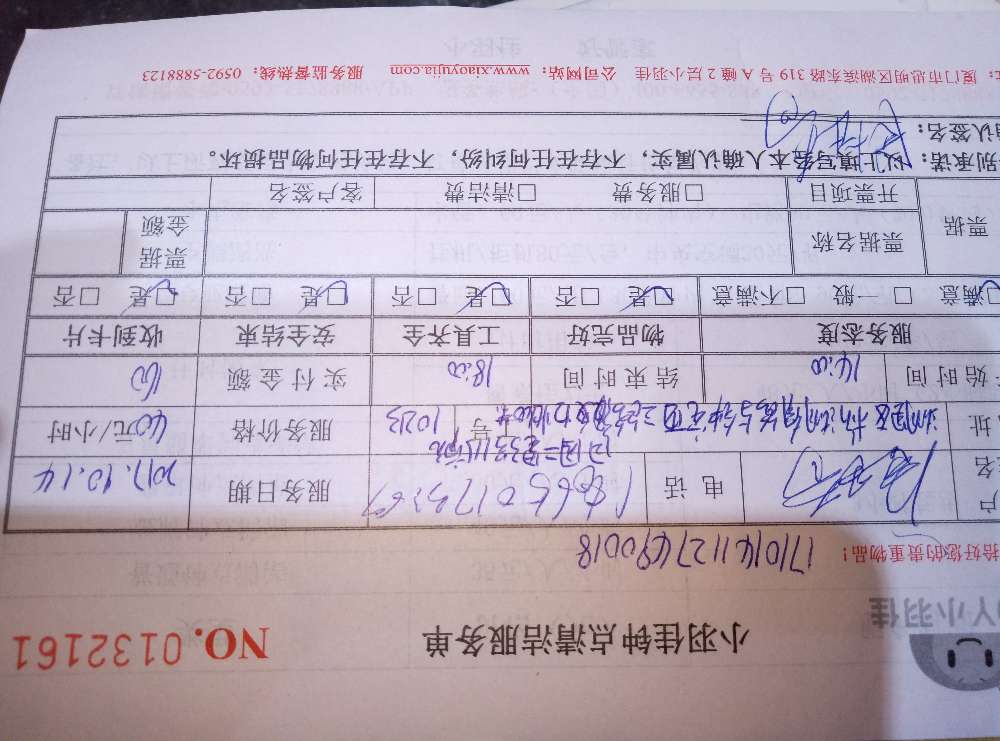 丫小羽佳
小羽佳钟点清洁服务单
NO. 0132161
拾好您的贵重物品!
17101411274690018
户名 电话 服务日期 2017.10.14
址 号 10213 服务价格 40元/小时
始时间 14:00 结束时间 18:00 实付金额 160
服务态度 物品完好 工具齐全 安全结束 收到卡片
满意 □ 一般 □ 不满意 是 □ 否 是 □ 否 是 □ 否 是 □ 否
票据 票据名称 票据金额
开票项目 □ 服务费 □ 清洁费 客户签名
别承诺: 以上填写经本人确认属实,不存在任何纠纷,不存在任何物品损坏。
确认签名:
: 厦门市思明区湖滨东路 319 号 A 幢 2 层小羽佳 公司网站: www.xiaoyujia.com 服务监督热线: 0592-5888123